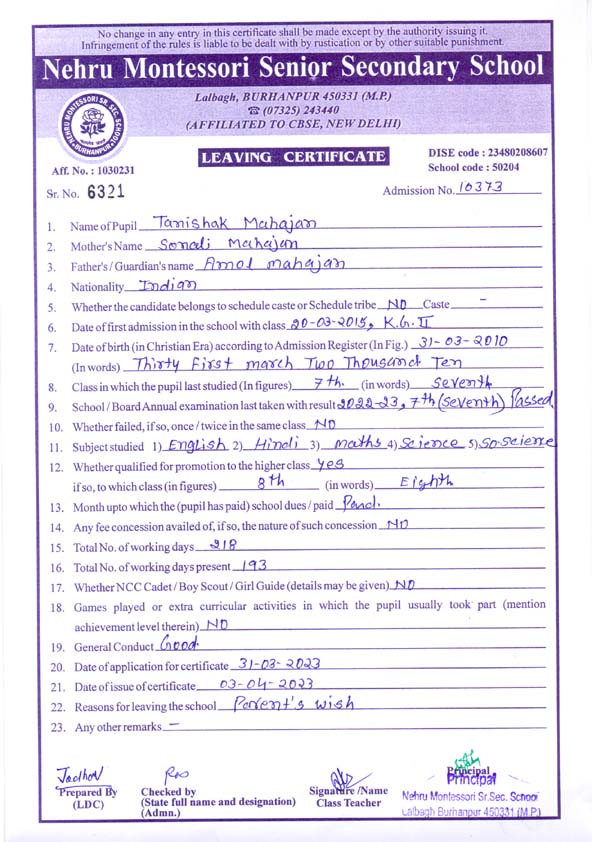 No change in any entry in this certificate shall be made except by the authority issuing it.
Infringement of the rules is liable to be dealt with by rustication or by other suitable punishment.
Nehru Montessori Senior Secondary School
Lalbagh, BURHANPUR 450331 (M.P.)
☎ (07325) 243440
(AFFILIATED TO CBSE, NEW DELHI)
NEHRU MONTESSORI SR. SEC. SCHOOL
BURHANPUR
LEAVING CERTIFICATE
DISE code : 23480208607
School code : 50204
Aff. No. : 1030231
Sr. No. 6321
Admission No. 10373
1. Name of Pupil Tanishak Mahajan
2. Mother's Name Sonali Mahajan
3. Father's / Guardian's name Amol mahajan
4. Nationality Indian
5. Whether the candidate belongs to schedule caste or Schedule tribe NO Caste –
6. Date of first admission in the school with class 20-03-2015, K.G. II
7. Date of birth (in Christian Era) according to Admission Register (In Fig.) 31-03-2010
(In words) Thirty First march Two Thousand Ten
8. Class in which the pupil last studied (In figures) 7th. (in words) Seventh
9. School / Board Annual examination last taken with result 2022-23, 7th (Seventh) Passed
10. Whether failed, if so, once / twice in the same class NO
11. Subject studied 1) English 2) Hindi 3) maths 4) Science 5) So.science
12. Whether qualified for promotion to the higher class yes
if so, to which class (in figures) 8th (in words) Eighth
13. Month upto which the (pupil has paid) school dues / paid Paid.
14. Any fee concession availed of, if so, the nature of such concession NO
15. Total No. of working days 218
16. Total No. of working days present 193
17. Whether NCC Cadet / Boy Scout / Girl Guide (details may be given) NO
18. Games played or extra curricular activities in which the pupil usually took part (mention
achievement level therein) NO
19. General Conduct Good.
20. Date of application for certificate 31-03-2023
21. Date of issue of certificate 03-04-2023
22. Reasons for leaving the school Parent's wish
23. Any other remarks –
Jadhav
Prepared By
(LDC)
Checked by
(State full name and designation)
(Admn.)
Signature /Name
Class Teacher
Principal
Principal
Nehru Montessori Sr.Sec. School
Lalbagh Burhanpur 450331 (M.P.)